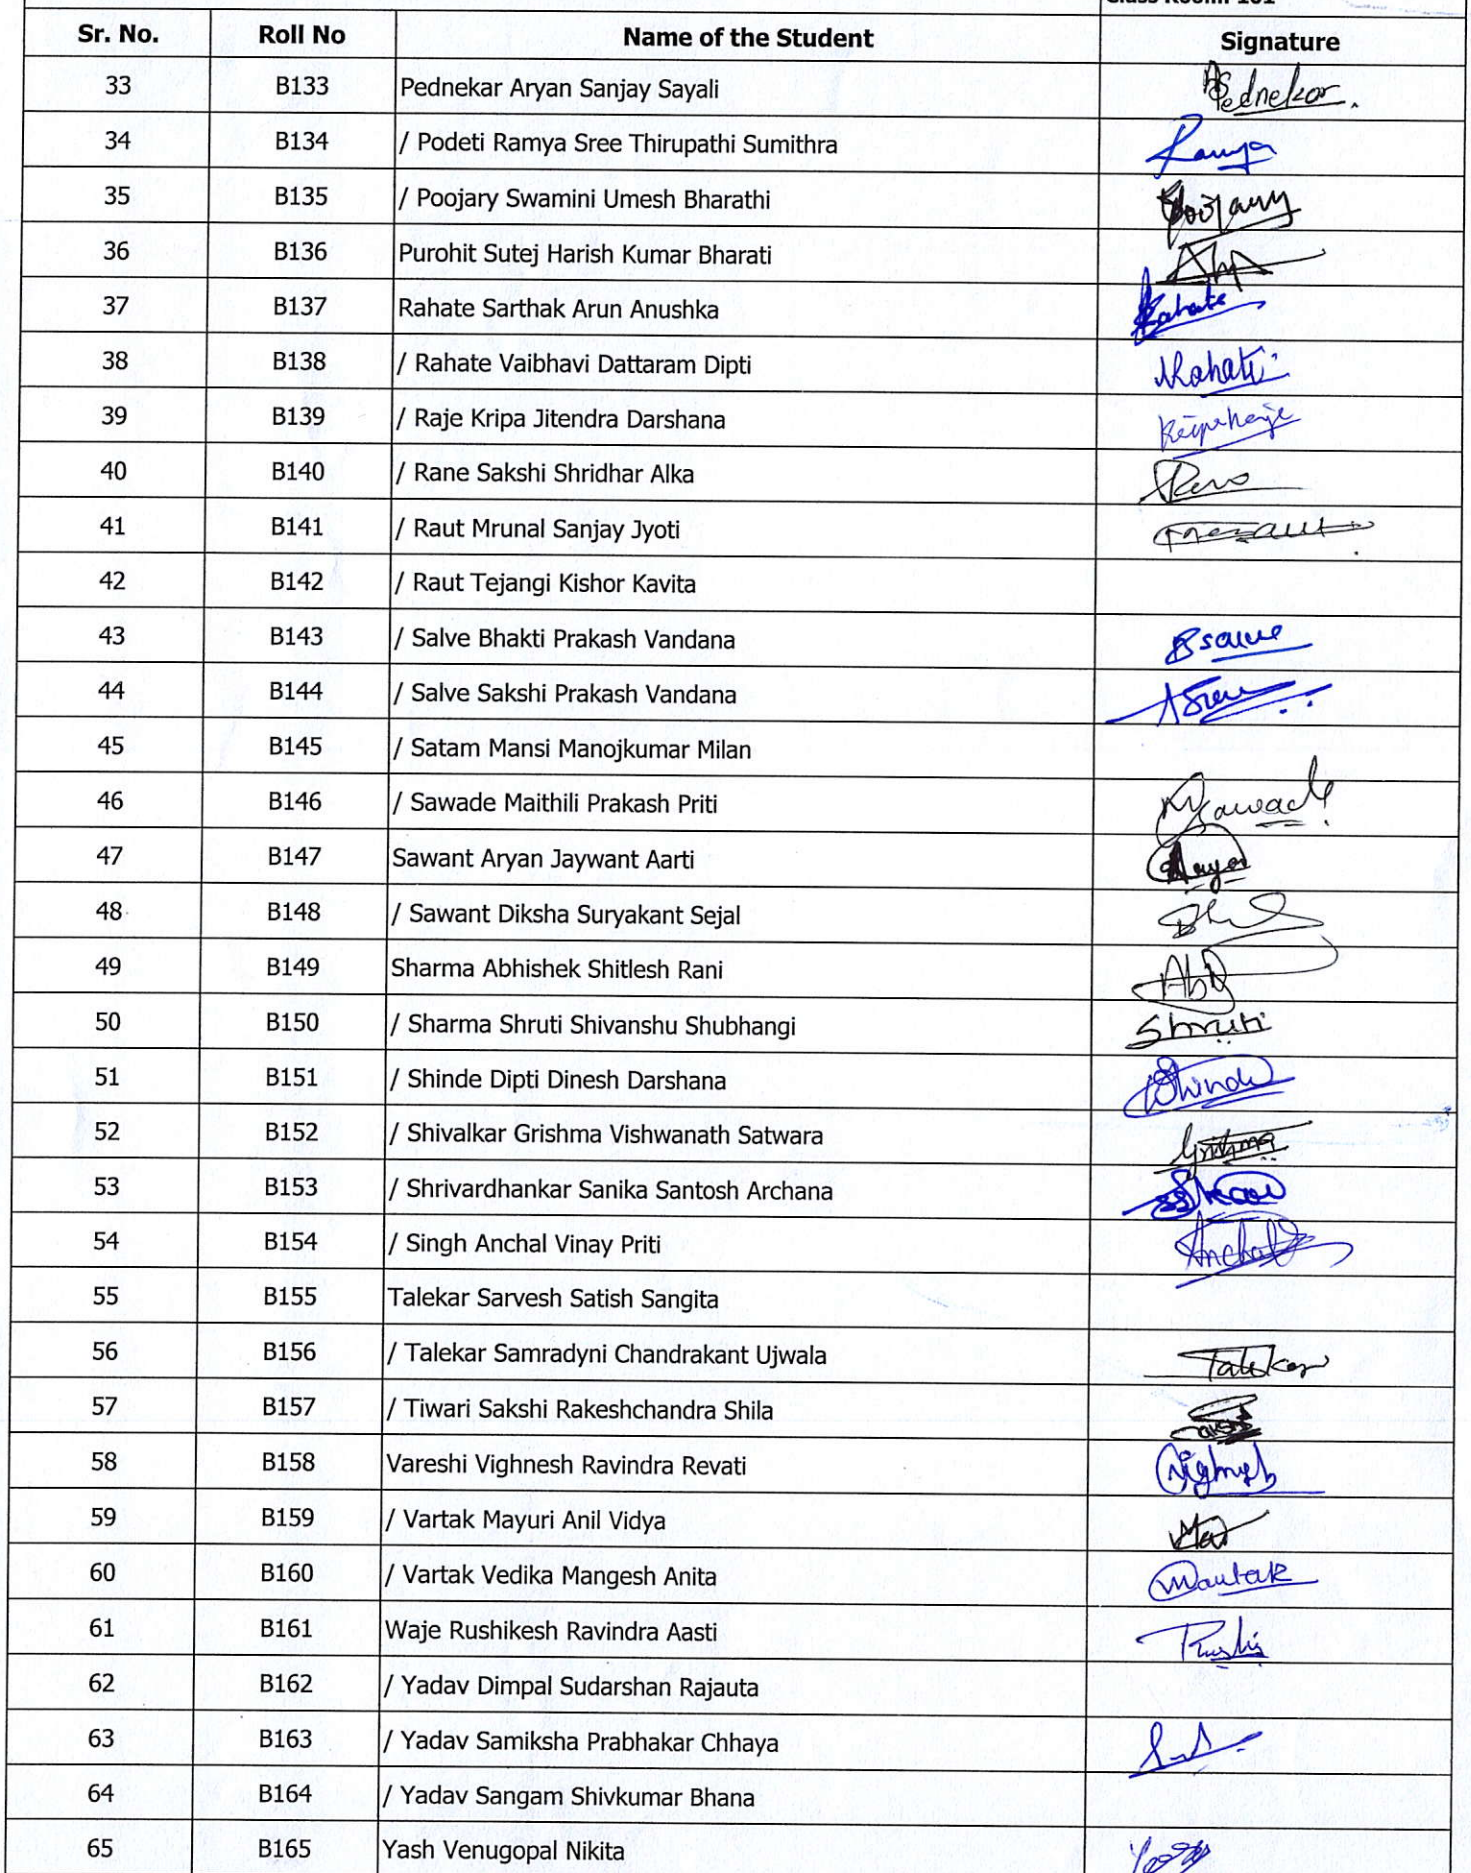 Class Room 101
Sr. No. Roll No Name of the Student Signature
33 B133 Pednekar Aryan Sanjay Sayali Pednekar.
34 B134 / Podeti Ramya Sree Thirupathi Sumithra Ramya
35 B135 / Poojary Swamini Umesh Bharathi Poojary
36 B136 Purohit Sutej Harish Kumar Bharati
37 B137 Rahate Sarthak Arun Anushka Rahate
38 B138 / Rahate Vaibhavi Dattaram Dipti
39 B139 / Raje Kripa Jitendra Darshana
40 B140 / Rane Sakshi Shridhar Alka
41 B141 / Raut Mrunal Sanjay Jyoti
42 B142 / Raut Tejangi Kishor Kavita
43 B143 / Salve Bhakti Prakash Vandana
44 B144 / Salve Sakshi Prakash Vandana
45 B145 / Satam Mansi Manojkumar Milan
46 B146 / Sawade Maithili Prakash Priti
47 B147 Sawant Aryan Jaywant Aarti
48 B148 / Sawant Diksha Suryakant Sejal
49 B149 Sharma Abhishek Shitlesh Rani
50 B150 / Sharma Shruti Shivanshu Shubhangi Shruti
51 B151 / Shinde Dipti Dinesh Darshana
52 B152 / Shivalkar Grishma Vishwanath Satwara
53 B153 / Shrivardhankar Sanika Santosh Archana
54 B154 / Singh Anchal Vinay Priti Anchal
55 B155 Talekar Sarvesh Satish Sangita
56 B156 / Talekar Samradyni Chandrakant Ujwala Talekar
57 B157 / Tiwari Sakshi Rakeshchandra Shila
58 B158 Vareshi Vighnesh Ravindra Revati
59 B159 / Vartak Mayuri Anil Vidya
60 B160 / Vartak Vedika Mangesh Anita
61 B161 Waje Rushikesh Ravindra Aasti
62 B162 / Yadav Dimpal Sudarshan Rajauta
63 B163 / Yadav Samiksha Prabhakar Chhaya
64 B164 / Yadav Sangam Shivkumar Bhana
65 B165 Yash Venugopal Nikita